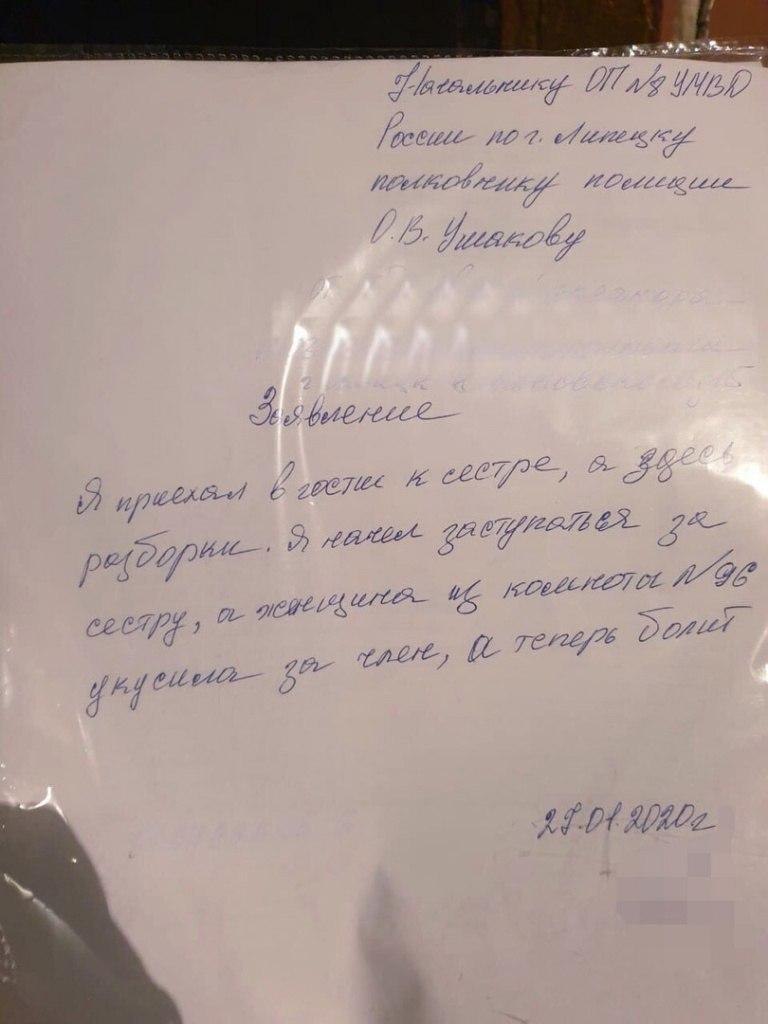 Начальнику ОП №8 УМВД
России по г. Липецку
полковнику полиции
О.В. Ушакову
Заявление
Я приехал в гости к сестре, а здесь
разборки. Я начал заступаться за
сестру, а женщина из комноты №96
укусила за член, а теперь болит
27.01.2020г